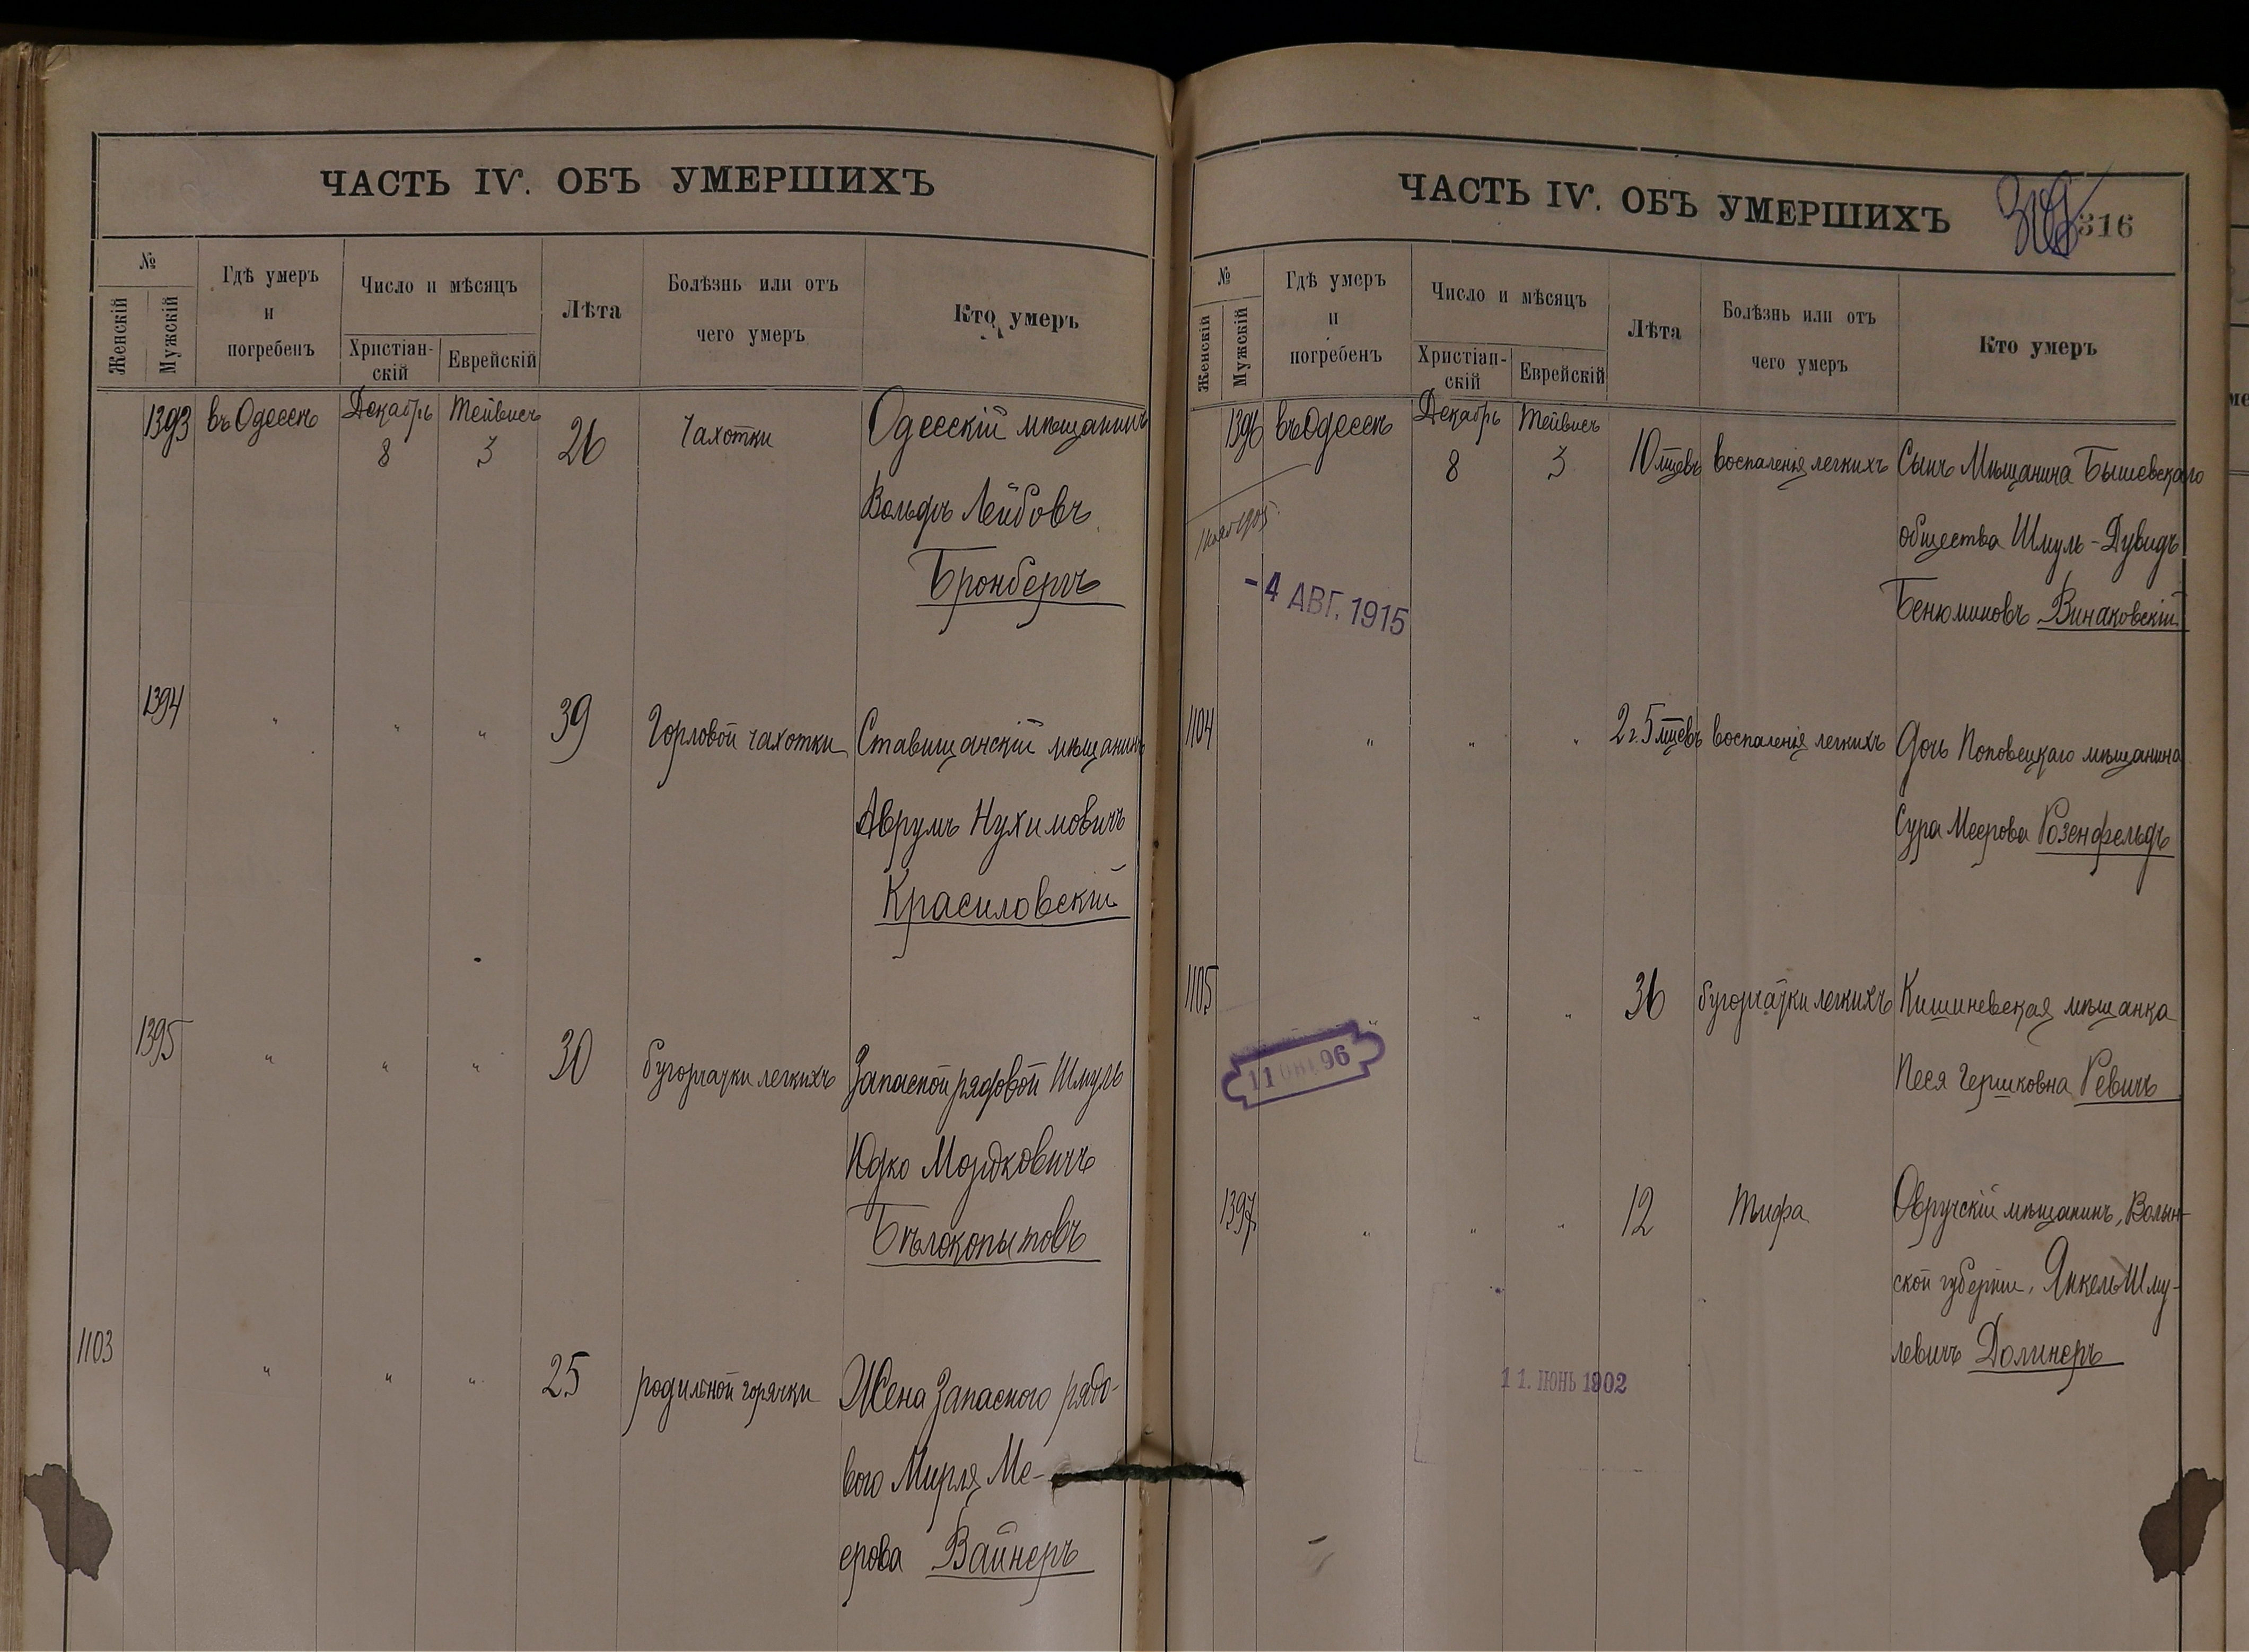 ЧАСТЬ IV. ОБЪ УМЕРШИХЪ
№
Женскій
Мужскій
Гдѣ умеръ
и
погребенъ
Число и мѣсяцъ
Христіан-
скій
Еврейскій
Лѣта
Болѣзнь или отъ
чего умеръ
Кто умеръ
1393 въ Одессѣ Декабрь 8 Тейвисъ 3 26 Чахотки Одесскій мѣщанинъ
Вольфъ Лейбовъ
Бронбергъ
1394 " " " 39 Горловой чахотки Ставищанскій мѣщанинъ
Аврумъ Нухимовичъ
Красиловскій
1395 " " " 30 бугорчатки легкихъ Запасной рядовой Шмуль
Юдко Мордковичъ
Бѣлокопытовъ
1103 " " " 25 родильной горячки Жена Запасного рядо-
вого Мирля Ме-
ерова Вайнеръ
ЧАСТЬ IV. ОБЪ УМЕРШИХЪ
316
№
Женскій
Мужскій
Гдѣ умеръ
и
погребенъ
Число и мѣсяцъ
Христіан-
скій
Еврейскій
Лѣта
Болѣзнь или отъ
чего умеръ
Кто умеръ
1396 въ Одессѣ Декабрь 8 Тейвисъ 3 10 мцевъ воспаленія легкихъ Сынъ Мѣщанина Бышевскаго
общества Шмуль-Дувидъ
Бенюминовъ Винаковскій
1905
-4 АВГ. 1915
1104 " " " 2 г. 5 мцевъ воспаленія легкихъ Дочь Поповецкаго мѣщанина
Сура Меерова Розенфельдъ
1105 " " " 36 бугорчатки легкихъ Кишиневская мѣщанка
Песя Гершковна Ревичъ
11 96
1397 " " " 12 Тифа Овручскій мѣщанинъ, Волын-
ской губерніи, Янкель Шму-
левичъ Долинеръ
11. ІЮНЬ 1902